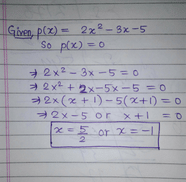 Given, p(x) = 2x² - 3x - 5
So p(x) = 0
⇒ 2x² - 3x - 5 = 0
⇒ 2x² + 2x - 5x - 5 = 0
⇒ 2x (x + 1) - 5(x+1) = 0
⇒ 2x - 5 or x + 1 = 0
x = 5/2 or x = -1